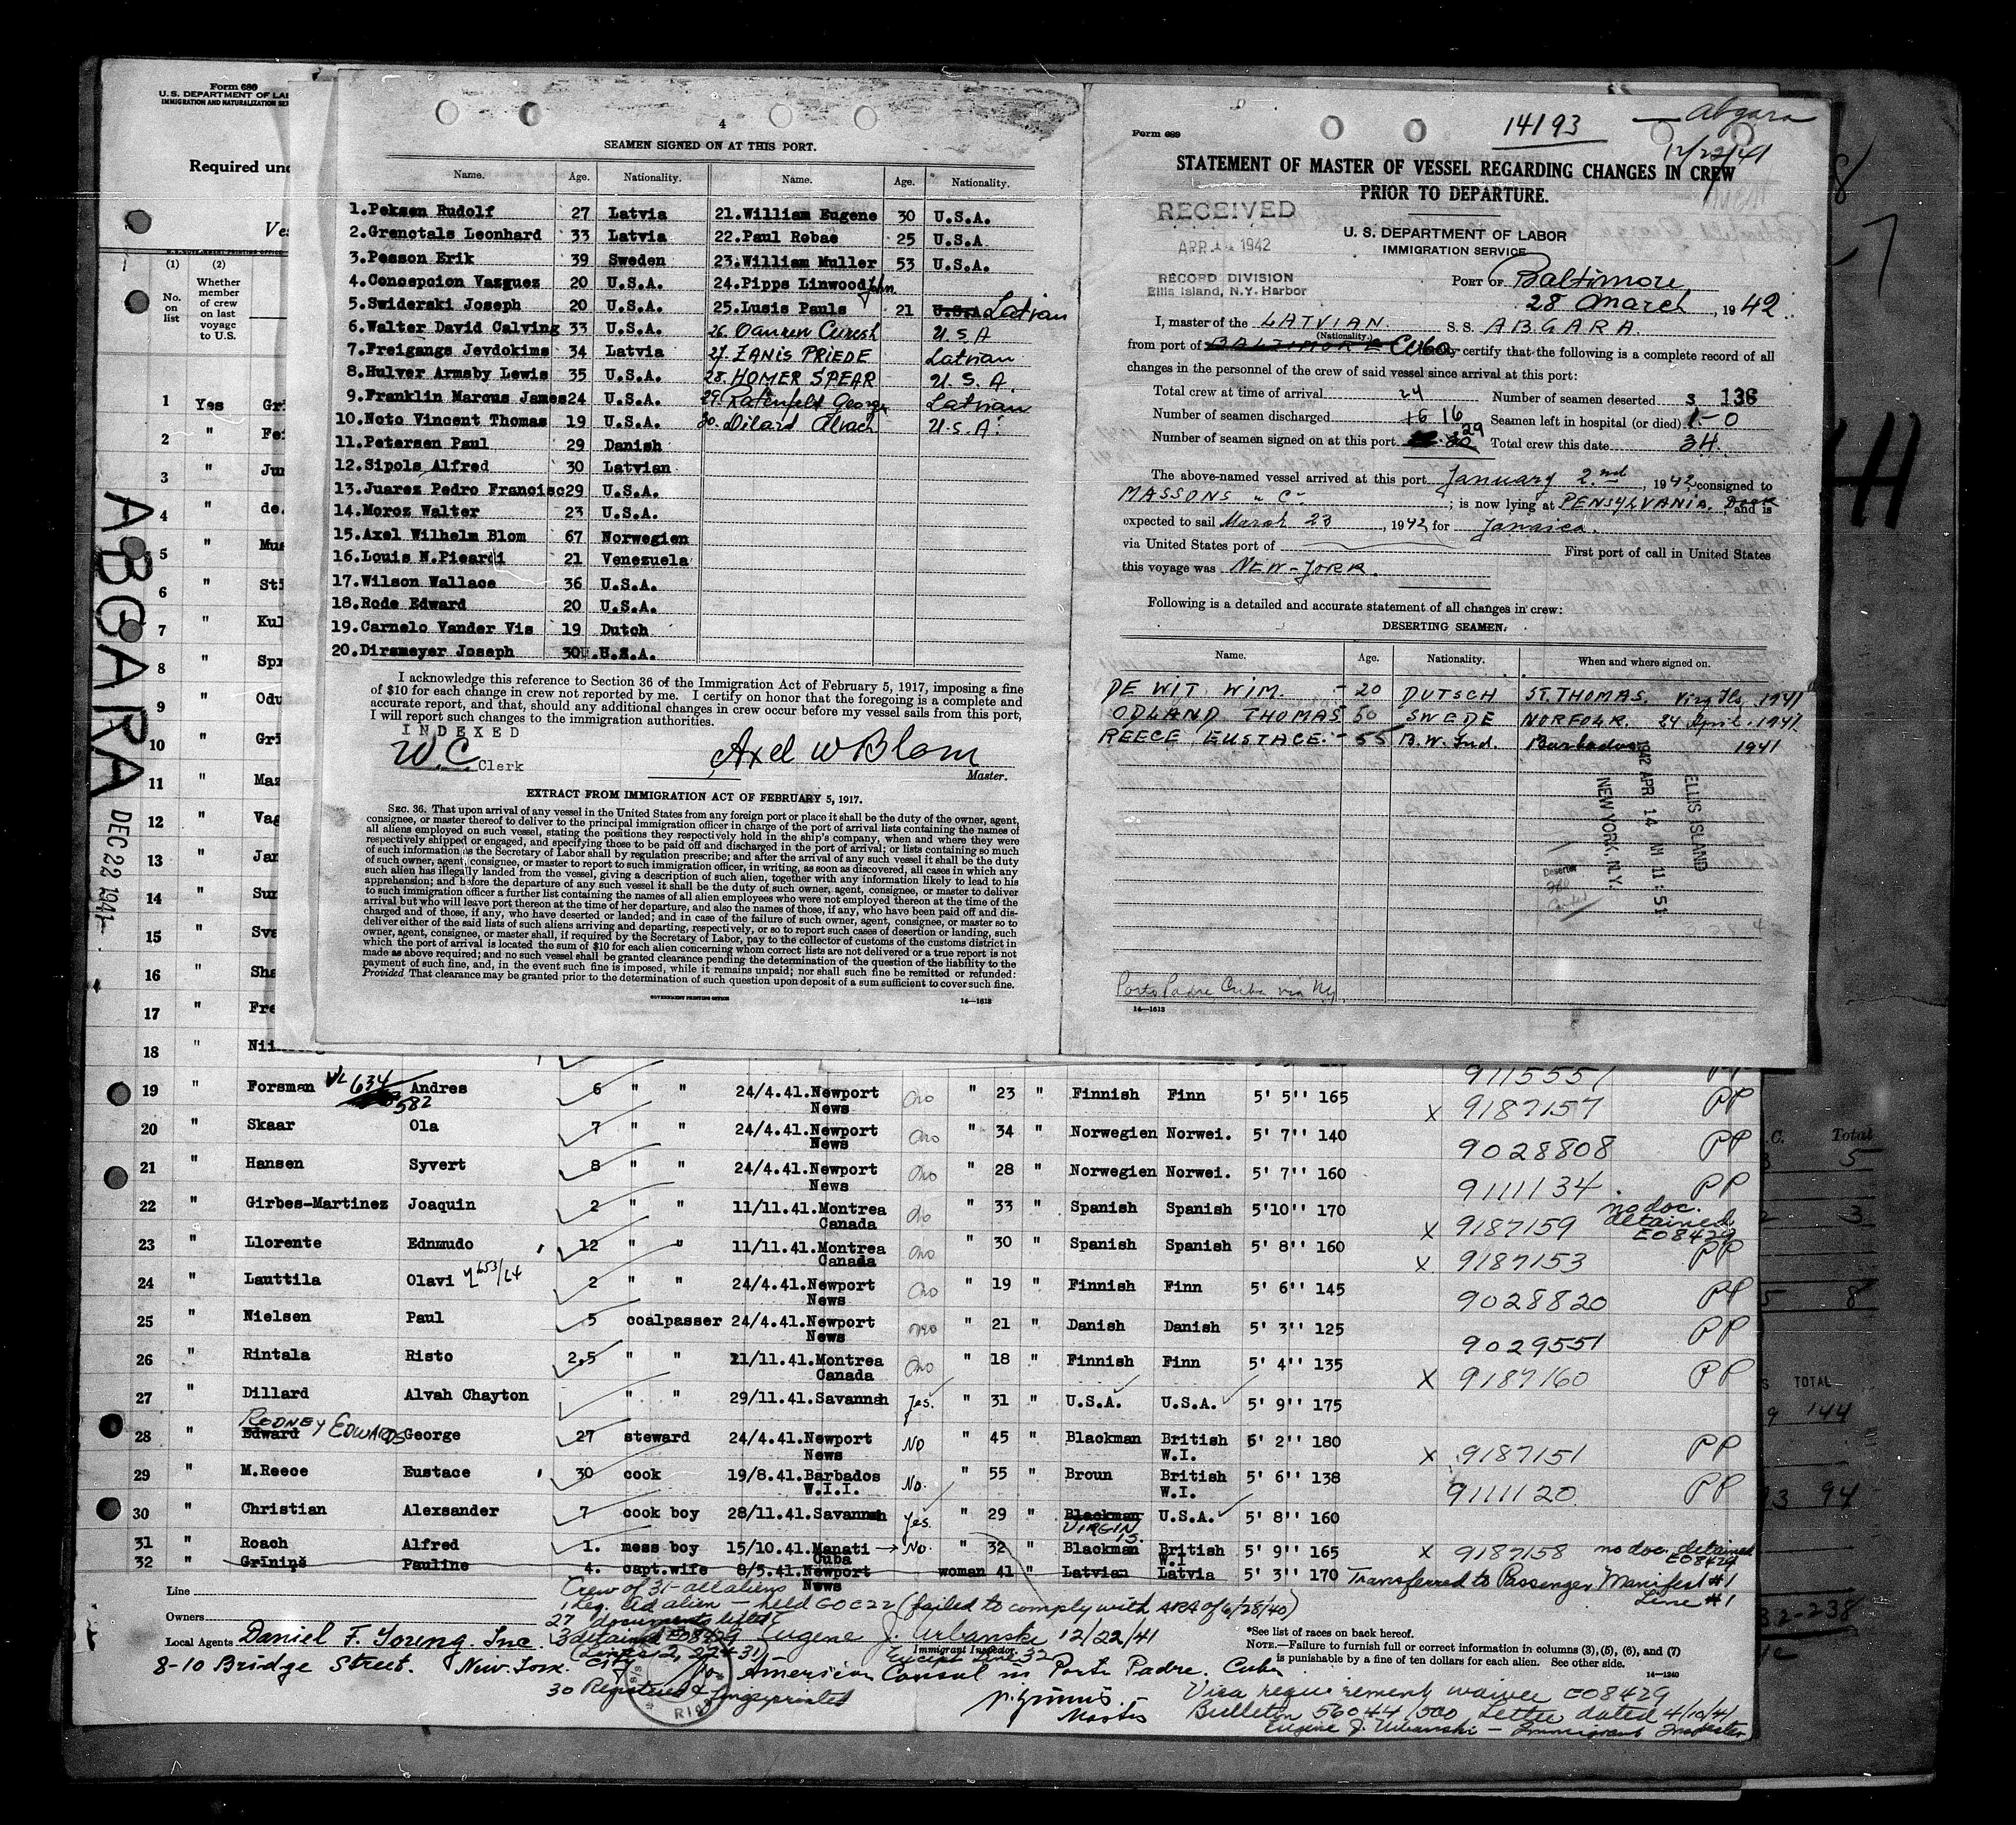 Form 689
U. S. DEPARTMENT OF LAB
IMMIGRATION AND NATURALIZATION SE
Required und
Ves
(1) (2)
No. on list
Whether member of crew on last voyage to U.S.
1 Yes Gri
2 " Fei
3 " Jur
4 " de.
5 " Mus
6 " Sti
7 " Kul
8 " Spr
9 " Odu
10 " Gri
11 " Maz
12 " Vag
13 " Jan
14 " Sur
15 " Sva
16 " Sha
17 " Fre
18 "
ABGARA DEC 22 1941
4
SEAMEN SIGNED ON AT THIS PORT.
Name. Age. Nationality. Name. Age. Nationality.
1.Peksen Rudolf 27 Latvia 21.William Eugene 30 U.S.A.
2.Grenotals Leonhard 33 Latvia 22.Paul Robae 25 U.S.A
3.Pesson Erik 39 Sweden 23.William Muller 53 U.S.A.
4.Concepcion Vazguez 20 U.S.A. 24.Pipps Linwood John
5.Swiderski Joseph 20 U.S.A. 25.Lusis Pauls 21 U.S.A Latvian
6.Walter David Calving 33 U.S.A. 26. U.S.A
7.Freigangs Jevdokims 34 Latvia 27. ZANIS PRIEDE Latvian
8.Hulver Armsby Lewis 35 U.S.A. 28. HOMER SPEAR U.S.A.
9.Franklin Marcus James 24 U.S.A. 29. Ratenfelt George Latvian
10.Noto Vincent Thomas 19 U.S.A. 30. Dilard Alvach U.S.A.
11.Petersen Paul 29 Danish
12.Sipols Alfred 30 Latvian
13.Juarez Pedro Francisc 29 U.S.A.
14.Moroz Walter 23 U.S.A.
15.Axel Wilhelm Blom 67 Norwegien
16.Louis N.Picardi 21 Venezuela
17.Wilson Wallace 36 U.S.A.
18.Rode Edward 20 U.S.A.
19.Carnelo Vander Vis 19 Dutch
20.Dirsmeyer Joseph 30 U.S.A.
I acknowledge this reference to Section 36 of the Immigration Act of February 5, 1917, imposing a fine
of $10 for each change in crew not reported by me. I certify on honor that the foregoing is a complete and
accurate report, and that, should any additional changes in crew occur before my vessel sails from this port,
I will report such changes to the immigration authorities.
INDEXED
W.C. Clerk
Axel W Blom
Master.
EXTRACT FROM IMMIGRATION ACT OF FEBRUARY 5, 1917.
SEC. 36. That upon arrival of any vessel in the United States from any foreign port or place it shall be the duty of the owner, agent,
consignee, or master thereof to deliver to the principal immigration officer in charge of the port of arrival lists containing the names of
all aliens employed on such vessel, stating the positions they respectively held in the ship's company, when and where they were
respectively shipped or engaged, and specifying those to be paid off and discharged in the port of arrival; or lists containing so much
of such information as the Secretary of Labor shall by regulation prescribe; and after the arrival of any such vessel it shall be the duty
of such owner, agent, consignee, or master to report to such immigration officer, in writing, as soon as discovered, all cases in which any
such alien has illegally landed from the vessel, giving a description of such alien, together with any information likely to lead to his
apprehension; and before the departure of any such vessel it shall be the duty of such owner, agent, consignee, or master to deliver
to such immigration officer a further list containing the names of all alien employees who were not employed thereon at the time of the
arrival but who will leave port thereon at the time of her departure, and also the names of those, if any, who have been paid off and dis-
charged and of those, if any, who have deserted or landed; and in case of the failure of such owner, agent, consignee, or master so to
deliver either of the said lists of such aliens arriving and departing, respectively, or so to report such cases of desertion or landing, such
owner, agent, consignee, or master shall, if required by the Secretary of Labor, pay to the collector of customs of the customs district in
which the port of arrival is located the sum of $10 for each alien concerning whom correct lists are not delivered or a true report is not
made as above required; and no such vessel shall be granted clearance pending the determination of the question of the liability to the
payment of such fine, and, in the event such fine is imposed, while it remains unpaid; nor shall such fine be remitted or refunded:
Provided That clearance may be granted prior to the determination of such question upon deposit of a sum sufficient to cover such fine.
GOVERNMENT PRINTING OFFICE 14—1613
Form 689
14193
Abgara
12/22/41
STATEMENT OF MASTER OF VESSEL REGARDING CHANGES IN CREW
PRIOR TO DEPARTURE.
RECEIVED
APR 14 1942
RECORD DIVISION
Ellis Island, N.Y. Harbor
U. S. DEPARTMENT OF LABOR
IMMIGRATION SERVICE
PORT OF Baltimore,
28 March, 1942.
I, master of the LATVIAN (Nationality.) S. S. ABGARA.
from port of BALTIMORE Cuba, certify that the following is a complete record of all
changes in the personnel of the crew of said vessel since arrival at this port:
Total crew at time of arrival 24 Number of seamen deserted 3 136
Number of seamen discharged 16 16 Seamen left in hospital (or died) 1-0
Number of seamen signed on at this port 29 Total crew this date 34.
The above-named vessel arrived at this port January 2nd, 1942, consigned to
MASSONS "C"; is now lying at PENSYLVANIA. Dock, and is
expected to sail March 23, 1942 for Jamaica.
via United States port of First port of call in United States
this voyage was NEW-YORK.
Following is a detailed and accurate statement of all changes in crew:
DESERTING SEAMEN.
Name. Age. Nationality. When and where signed on.
DE WIT WIM. - 20 DUTSCH ST. THOMAS. Virg Ils, 1941
ODLAND THOMAS 50 SWEDE NORFOLK. 24 April. 1941.
REECE EUSTACE. - 55 B.W. Ind. Barbados 1941
ELLIS ISLAND
1942 APR 14 AM 11:51
NEW YORK, N.Y.
Deserter
Porto Padre Cuba via Ny.
14—1613
9115551 PP
19 " Forsman Andres 6 " " 24/4.41.Newport News No " 23 " Finnish Finn 5' 5'' 165 X 9187157 PP
20 " Skaar Ola 7 " " 24/4.41.Newport News No " 34 " Norwegien Norwei. 5' 7'' 140 9028808 PP
21 " Hansen Syvert 8 " " 24/4.41.Newport News No " 28 " Norwegien Norwei. 5' 7'' 160 9111134 PP
22 " Girbes-Martinez Joaquin 2 " " 11/11.41.Montrea Canada No " 33 " Spanish Spanish 5'10'' 170 X 9187159 no doc. detained E08429
23 " Llorente Ednmudo 12 " " 11/11.41.Montrea Canada No " 30 " Spanish Spanish 5' 8'' 160 X 9187153 PP
24 " Lauttila Olavi 2 " " 24/4.41.Newport News No " 19 " Finnish Finn 5' 6'' 145 9028820 PP
25 " Nielsen Paul 5 coalpasser 24/4.41.Newport News No " 21 " Danish Danish 5' 3'' 125 9029551 PP
26 " Rintala Risto 2,5 " " 11/11.41.Montrea Canada No " 18 " Finnish Finn 5' 4'' 135 X 9187160 PP
27 " Dillard Alvah Chayton " " 29/11.41.Savannah Yes. " 31 " U.S.A. U.S.A. 5' 9'' 175
28 " Edward RODNEY EDWARDS George 27 steward 24/4.41.Newport News No " 45 " Blackman British W.I. 6' 2'' 180 X 9187151 PP
29 " M.Reece Eustace 30 cook 19/8.41.Barbados W.I.I. No. " 55 " Broun British W.I. 5' 6'' 138 9111120 PP
30 " Christian Alexsander 7 cook boy 28/11.41.Savannah Yes. " 29 " Blackman VIRGIN IS. U.S.A. 5' 8'' 160
31 " Roach Alfred 1. mess boy 15/10.41.Manati Cuba No. " 32 " Blackman British W.I 5' 9'' 165 X 9187158 no doc. detained E08429
32 " Grīniņš Pauline 4. capt.wife 8/5.41.Newport News woman 41 " Latvian Latvia 5' 3'' 170 Transferred to Passenger Manifest #1 Line #1
Line
Crew of 31 - all aliens
1 Leg. Ad alien - held GOC22 (failed to comply with ARA of 6/28/40)
Owners 27 documents lifted
Local Agents Daniel F. Young. Inc. 3 detained E08429 Eugene J. Urbanski 12/22/41
Immigrant Inspector.
Except Line 32
8-10 Bridge Street. New York City
for American Consul in Porto Padre. Cuba
30 Registered & fingerprinted
Master
*See list of races on back hereof.
NOTE.—Failure to furnish full or correct information in columns (3), (5), (6), and (7)
is punishable by a fine of ten dollars for each alien. See other side.
14—1240
Visa requirement waived E08429
Bulletin 56044/500 Letter dated 4/10/41
Eugene J. Urbanski - Immigrant Inspector
C. Total
5
3
8
TOTAL
144
94
32-238